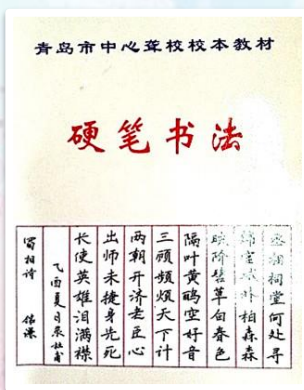 青岛市中心聋校校本教材
硬笔书法
丞相祠堂何处寻
锦官城外柏森森
映阶碧草自春色
隔叶黄鹂空好音
三顾频烦天下计
两朝开济老臣心
出师未捷身先死
长使英雄泪满襟
乙酉夏日录杜甫
蜀相诗